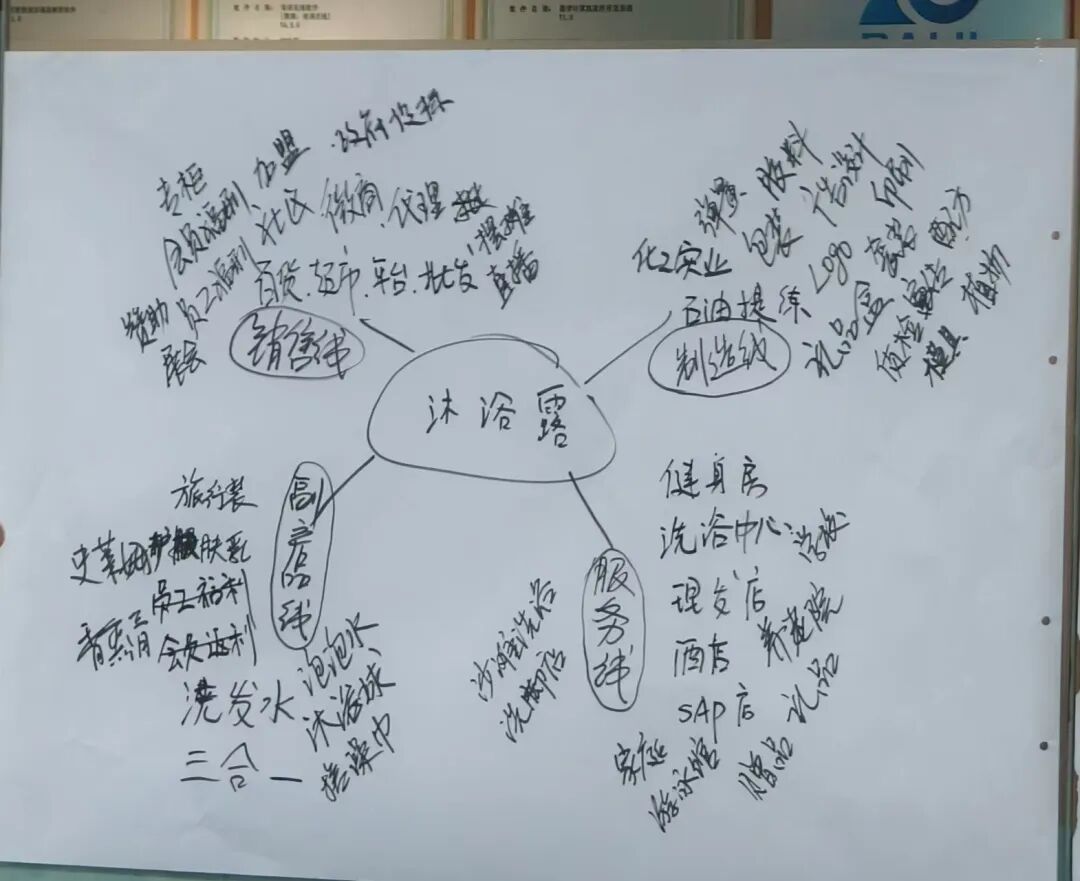 沐浴露
销售线
专柜
会员福利
加盟
政府投标
社区
微商
代理
摆摊
赞助
员工福利
百货.超市.平台.批发
直播
制造线
弹簧
胶料
化工实业
包装
广告设计
印刷
石油提练
Logo
套装
配方
礼品盒
质检
植物
模具
副产品线
旅行装
史莱姆
护肤乳
员工福利
会员福利
洗发水
三合一
泡泡水
沐浴球
搓澡巾
服务线
健身房
洗浴中心
理发店
酒店
养老院
SAP店
礼品
赠品
家庭
游泳馆
沙滩洗浴
洗脚店